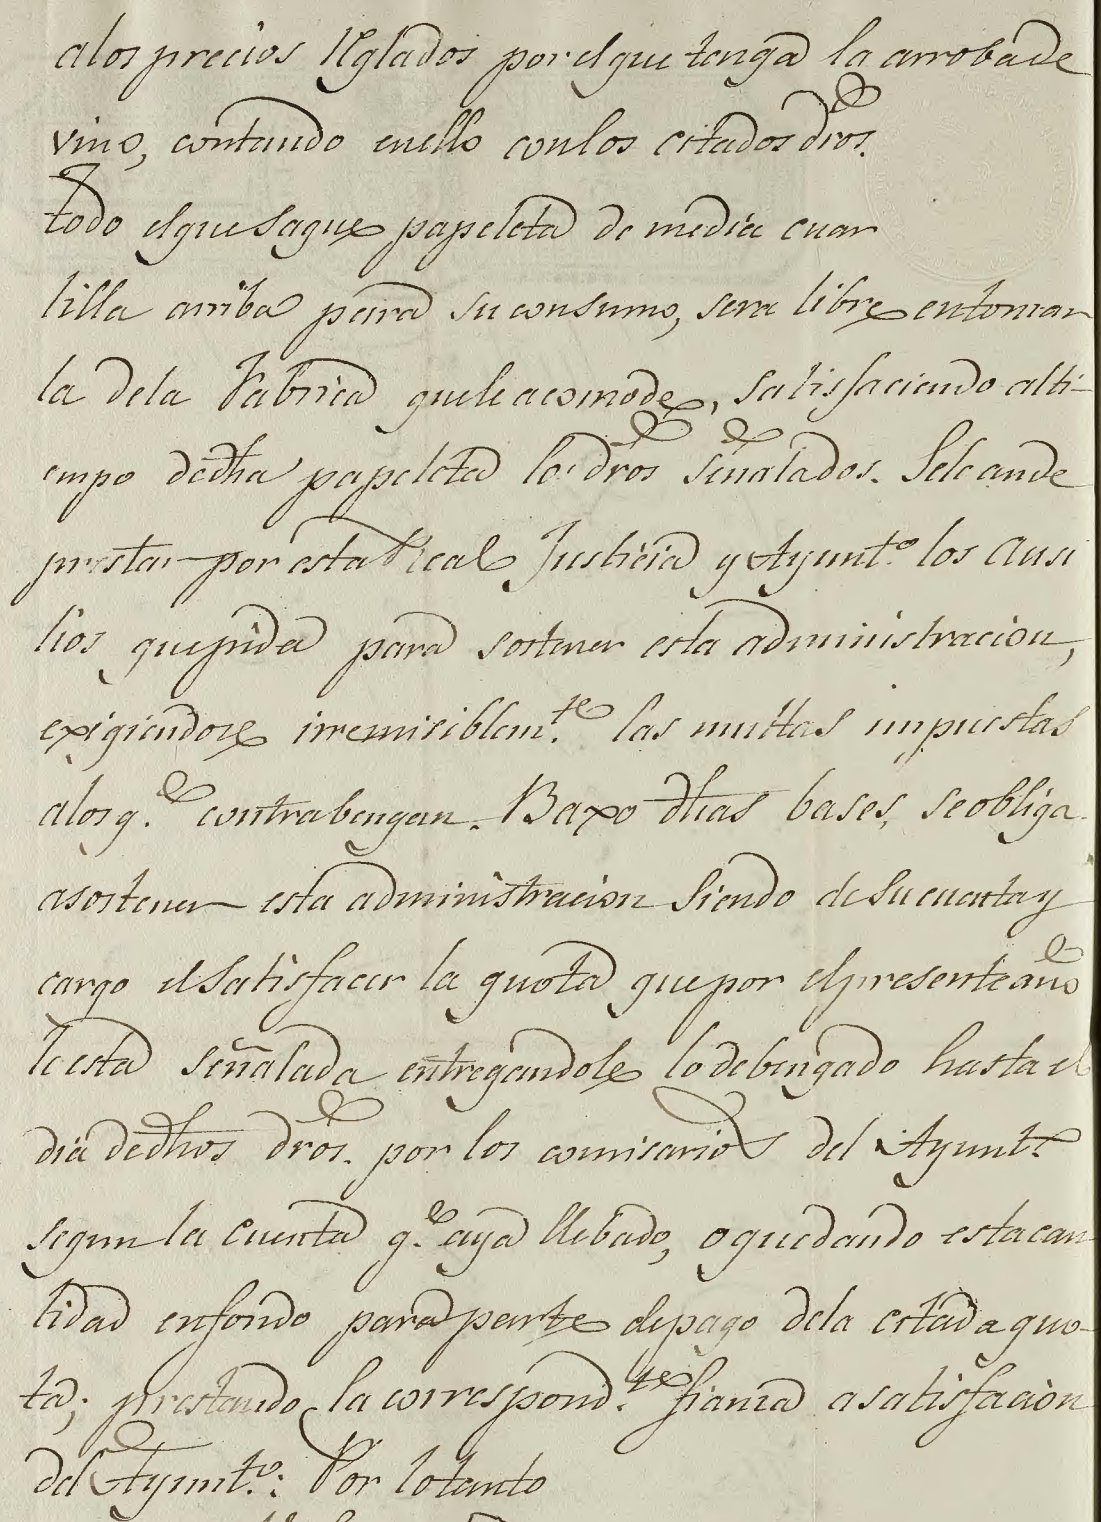 alos precios Reglados por el que tenga la arroba de
vino, contando enello conlos citados dros.
todo elque saque papeleta de media cuar
tilla arriba para su consumo, sera libre entomar
la dela Fabrica quele acomode, satisfaciendo alti-
empo dedha papeleta los dros señalados. Sele ande
prestar por esta Real Justicia y Ayunt.º los Ausi
lios que pida para sostener esta administracion,
exigiendose irremisiblem.te las multas impuestas
alos q.e contrabengan. Baxo dhas bases, se obliga
asostener esta administracion siendo de su cuenta y
cargo el satisfacer la quota que por elpresente año
le esta señalada entregandole lo debengado hasta el
dia dedhos dros. por los comisarios del Ayunt.º
segun la cuenta q.e aya llebado, o quedando esta can
tidad enfondo para parte de pago dela citada quo-
ta; prestando la correspond.te fianza a satisfacion
del Ayunt.º: Por lo tanto